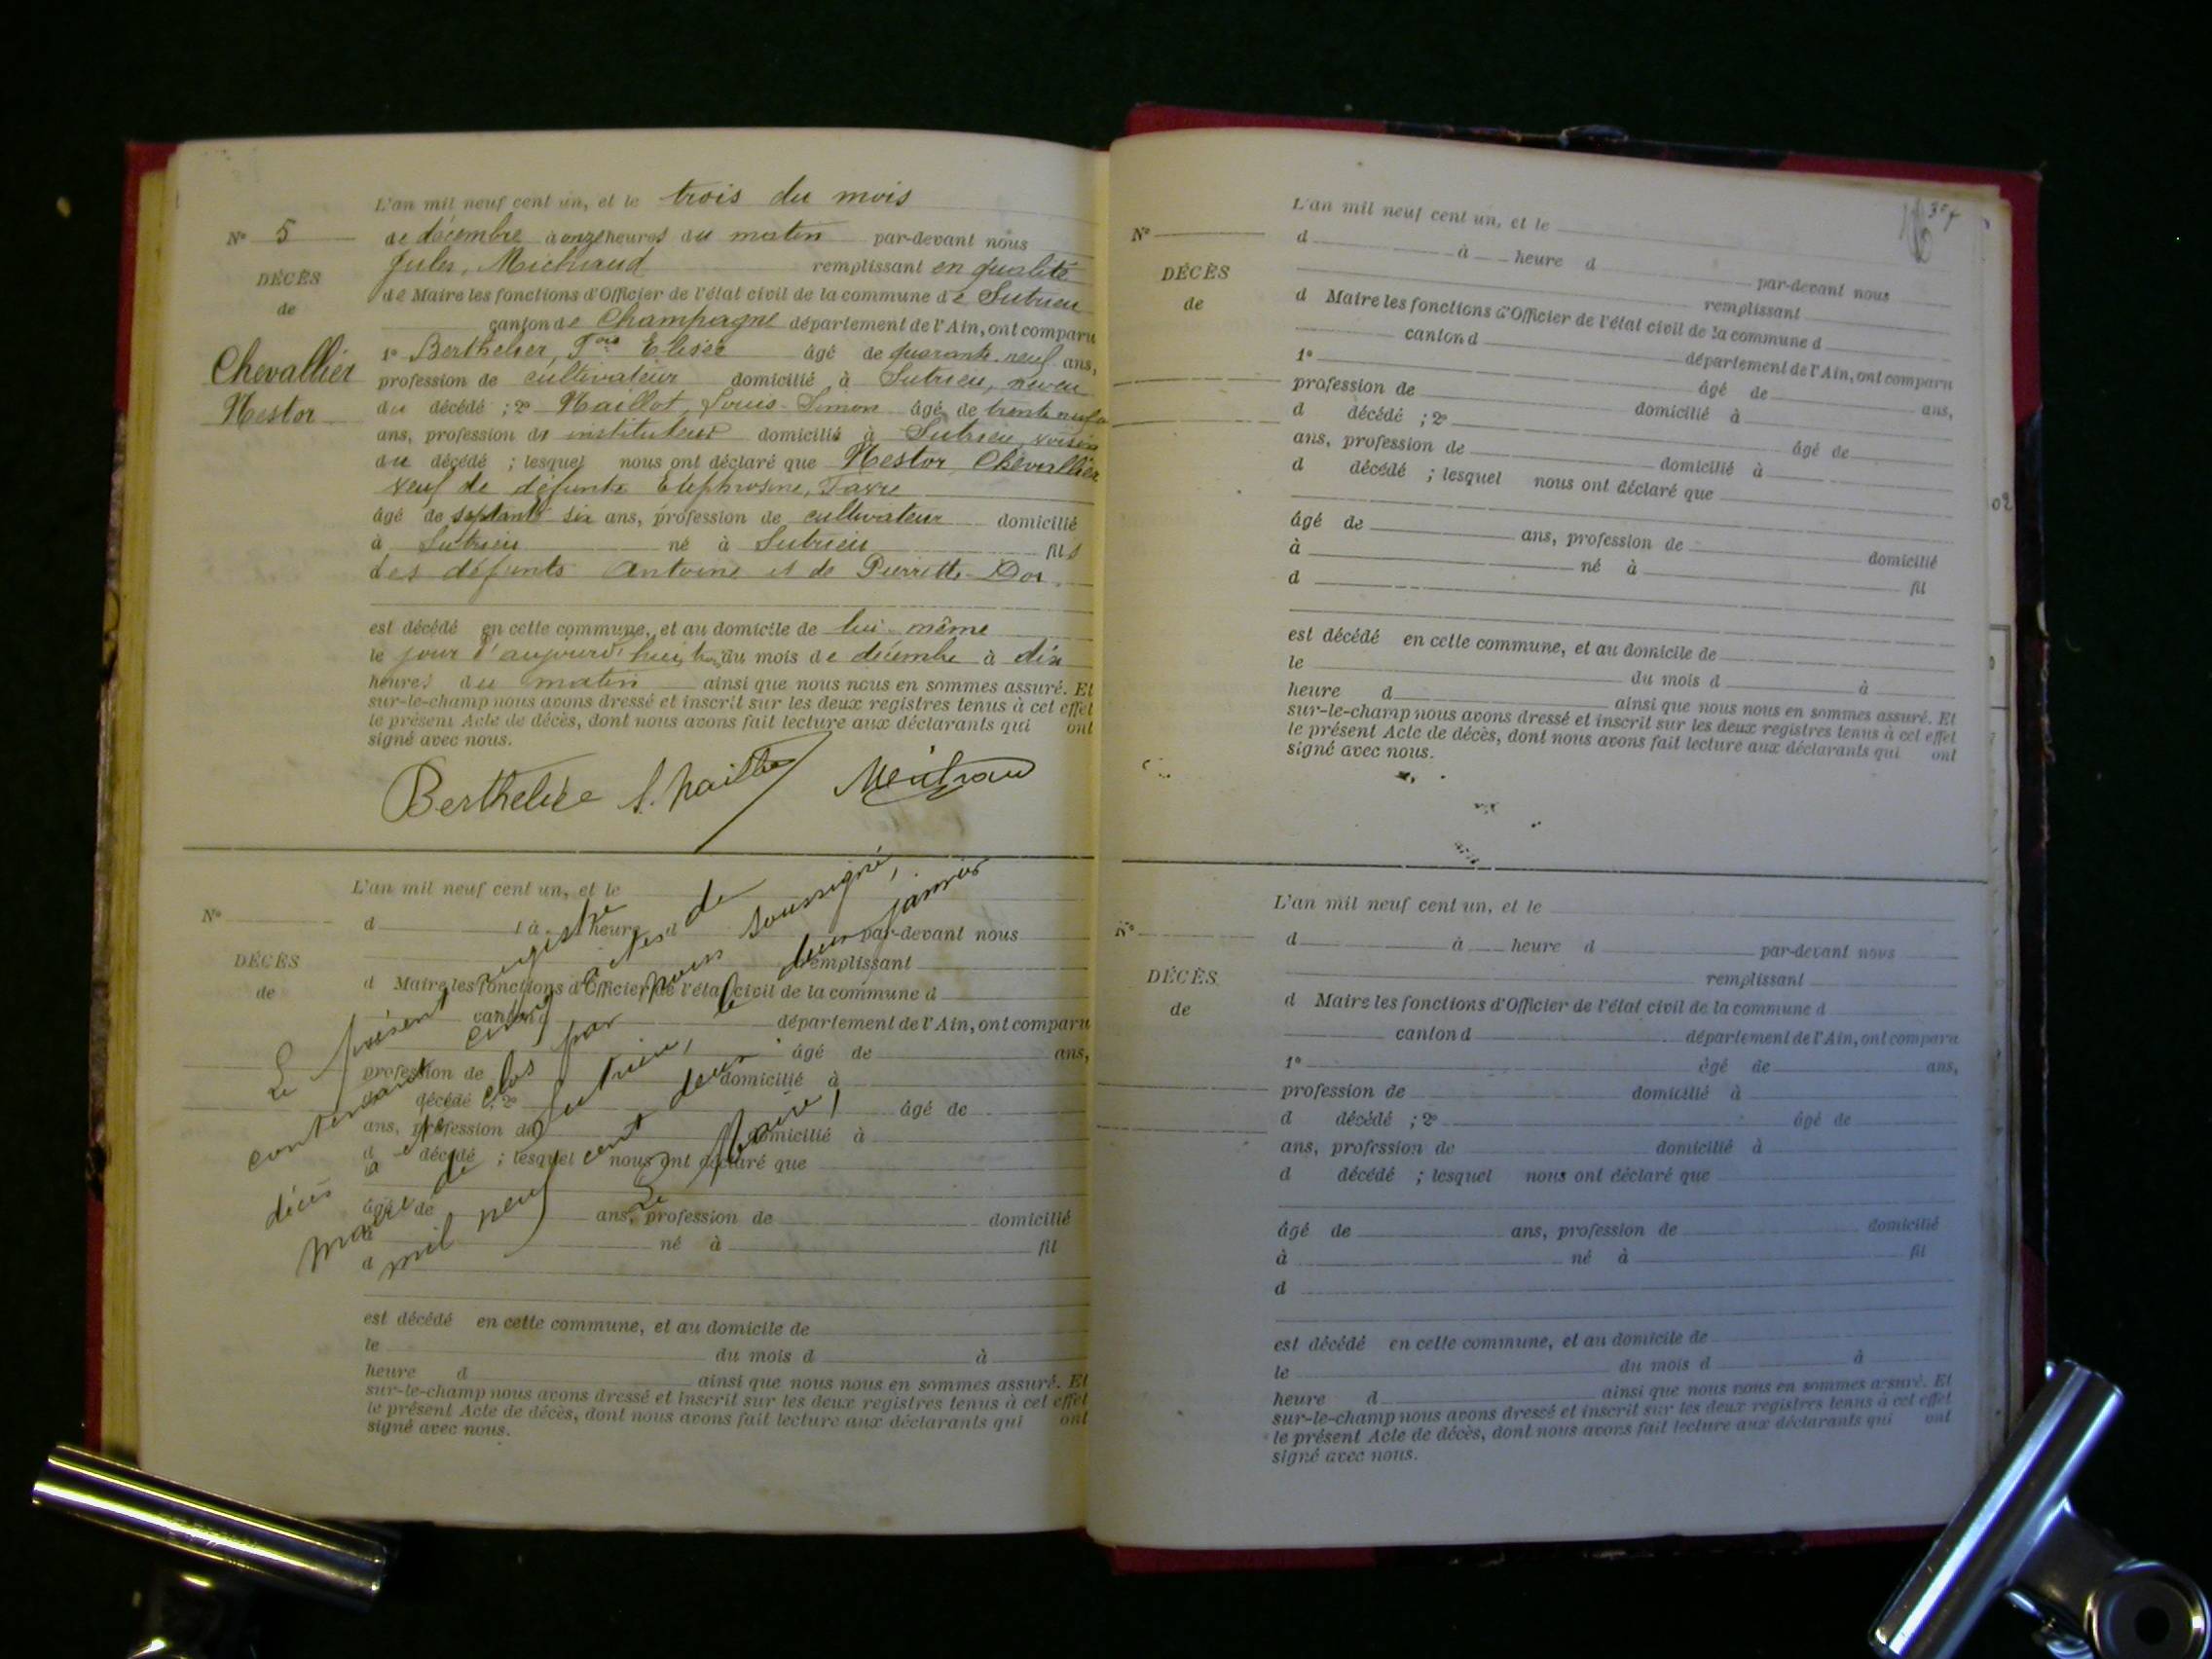 L'an mil neuf cent un, et le trois du mois
N° 5 de décembre à onze heures du matin par-devant nous
Jules, Michaud remplissant en qualité
DÉCÈS
de Maire les fonctions d'Officier de l'état civil de la commune de Sutrieu
de
canton de Champagne département de l'Ain, ont comparu
1° Berthelier, Elisée âgé de quarante neuf ans,
Chevallier
profession de cultivateur domicilié à Sutrieu, neveu
Nestor
du décédé ; 2° Naillot, Louis-Simon âgé de trente neuf
ans, profession de instituteur domicilié à Sutrieu, voisin
du décédé ; lesquel nous ont déclaré que Nestor, Chevallier
veuf de défunte Favre
âgé de septante six ans, profession de cultivateur domicilié
à Sutrieu né à Sutrieu fils
des défunts Antoine et de Pierrette
est décédé en cette commune, et au domicile de lui-même
le jour d'aujourd'hui, trois du mois de décembre à dix
heures du matin ainsi que nous nous en sommes assuré. Et
sur-le-champ nous avons dressé et inscrit sur les deux registres tenus à cet effet
le présent Acte de décès, dont nous avons fait lecture aux déclarants qui ont
signé avec nous.
L'an mil neuf cent un, et le
N°
d à heure d par-devant nous
DÉCÈS
remplissant
de
d Maire les fonctions d'Officier de l'état civil de la commune d
canton d département de l'Ain, ont comparu
âgé de ans,
profession de domicilié à
décédé ; 2° âgé de
ans, profession de domicilié à
d décédé ; lesquel nous ont déclaré que
âgé de ans, profession de domicilié
à né à fil
d
est décédé en cette commune, et au domicile de
le du mois d à
heure d ainsi que nous nous en sommes assuré. Et
sur-le-champ nous avons dressé et inscrit sur les deux registres tenus à cet effet
le présent Acte de décès, dont nous avons fait lecture aux déclarants qui ont
signé avec nous.
Le présent registre
contenant cinq actes de
décès a été clos par nous soussigné,
maire de Sutrieu, le deux janvier
mil neuf cent deux.
Le Maire,
L'an mil neuf cent un, et le
N°
d à heure d par-devant nous
DÉCÈS
remplissant
de
d Maire les fonctions d'Officier de l'état civil de la commune d
canton d département de l'Ain, ont comparu
1° âgé de ans,
profession de domicilié à
d décédé ; 2° âgé de
ans, profession de domicilié à
d décédé ; lesquel nous ont déclaré que
âgé de ans, profession de domicilié
à né à fil
d
est décédé en cette commune, et au domicile de
le du mois d à
heure d ainsi que nous nous en sommes assuré. Et
sur-le-champ nous avons dressé et inscrit sur les deux registres tenus à cet effet
le présent Acte de décès, dont nous avons fait lecture aux déclarants qui ont
signé avec nous.
L'an mil neuf cent un, et le
N°
d à heure d par-devant nous
remplissant
DÉCÈS
d Maire les fonctions d'Officier de l'état civil de la commune d
de
canton d département de l'Ain, ont comparu
1° âgé de ans,
profession de domicilié à
d décédé ; 2° âgé de
ans, profession de domicilié à
d décédé ; lesquel nous ont déclaré que
âgé de ans, profession de domicilié
à né à fil
d
est décédé en cette commune, et au domicile de
le du mois d à
heure d ainsi que nous nous en sommes assuré. Et
sur-le-champ nous avons dressé et inscrit sur les deux registres tenus à cet effet
le présent Acte de décès, dont nous avons fait lecture aux déclarants qui ont
signé avec nous.